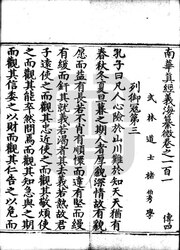 南華真經義海纂微卷之一百一 傳四
武林道士褚伯秀學
列御寇第三
孔子曰凡人心險於山川難於知天天猶有
春秋冬夏旦暮之期人者厚貌深情故有貌
愿而益有長若不肖有順懁而達有堅而縵
有緩而釬其就義若渴者其去義若熱故君
子遠使之而觀其忠近使之而觀其敬煩使
之而觀其能卒然問焉而觀其知急與之期
而觀其信委之以財而觀其仁告之以危而